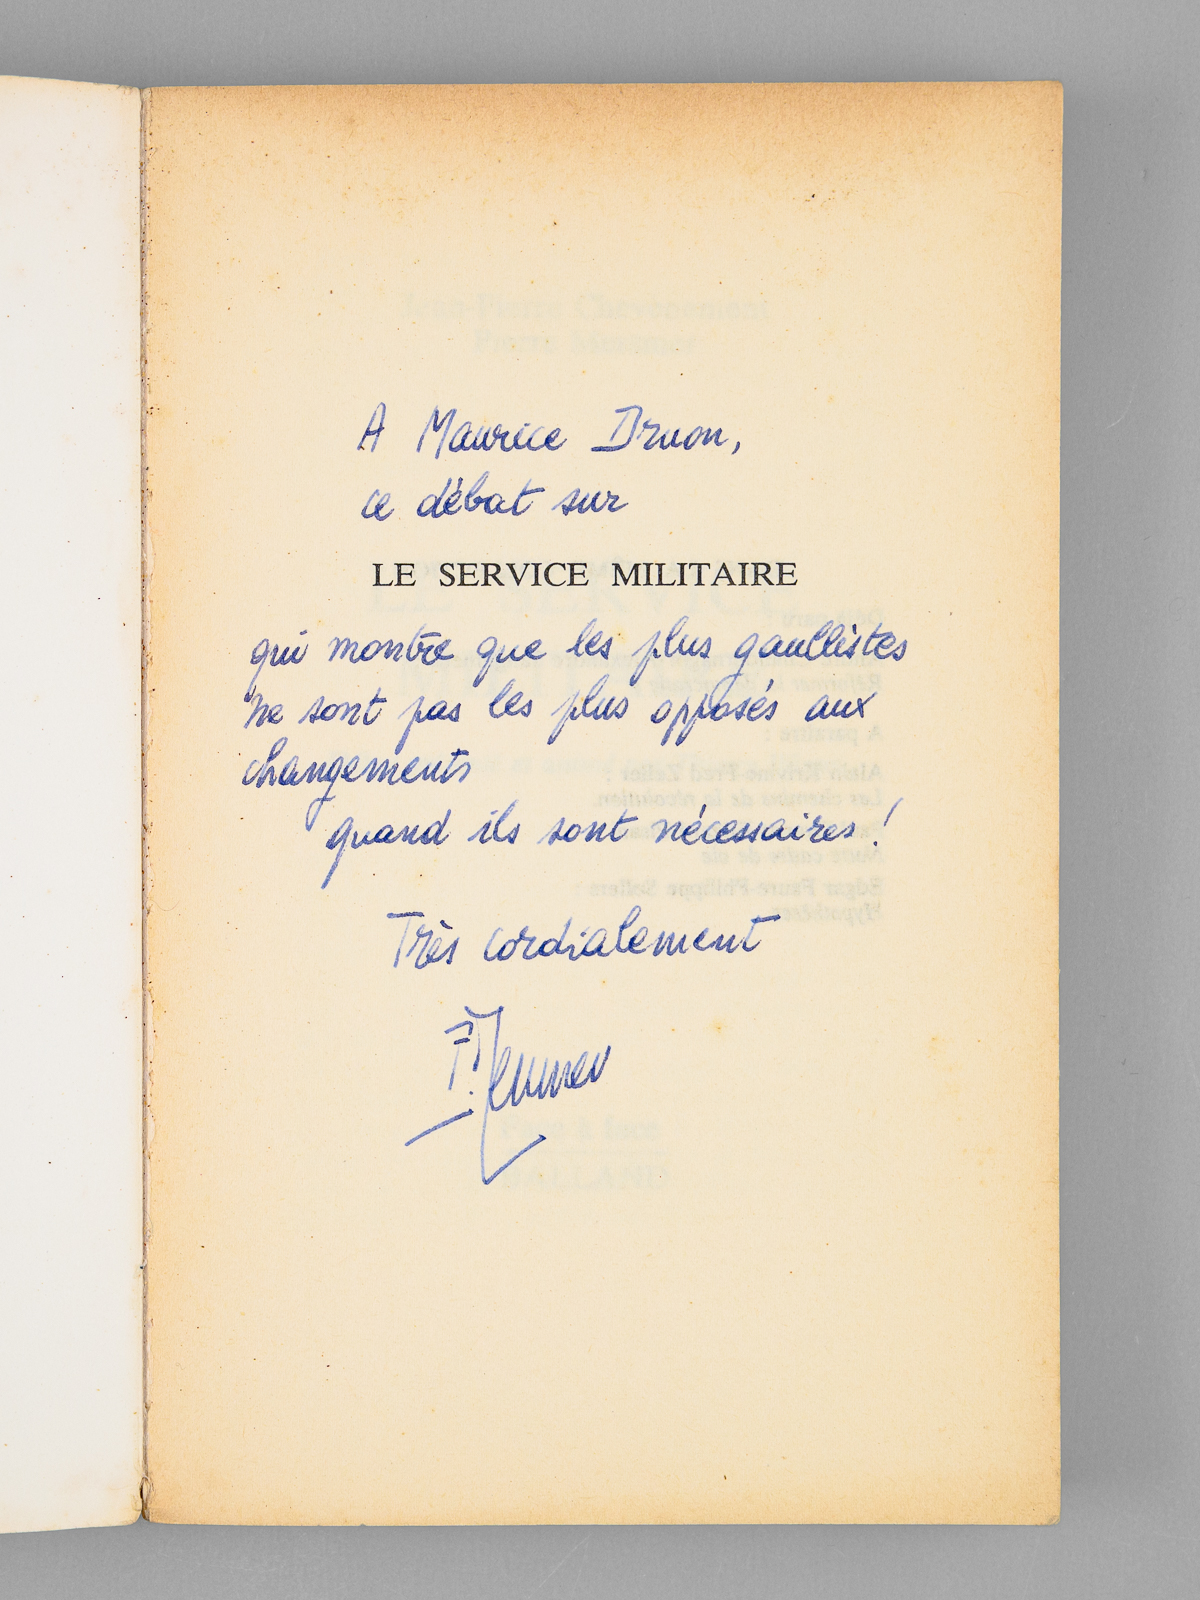 A Maurice Druon,
ce débat sur
LE SERVICE MILITAIRE
qui montre que les plus gaullistes
ne sont pas les plus opposés aux
changements
quand ils sont nécessaires !
Très cordialement